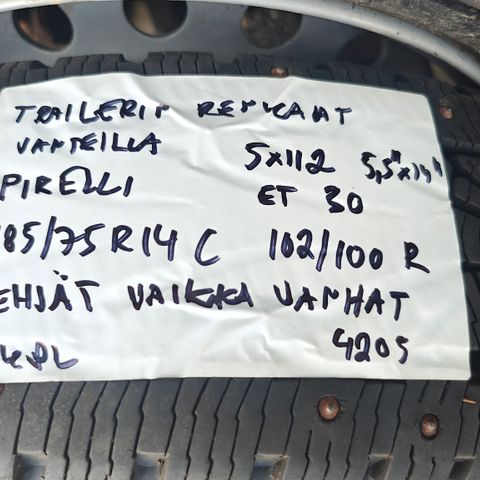 TRAILERIN RENKAAT
VANTEILLA 5x112 5,5"x14"
PIRELLI ET 30
185/75 R14 C 102/100 R
EHJÄT VAIKKA VANHAT
4 KPL 4205